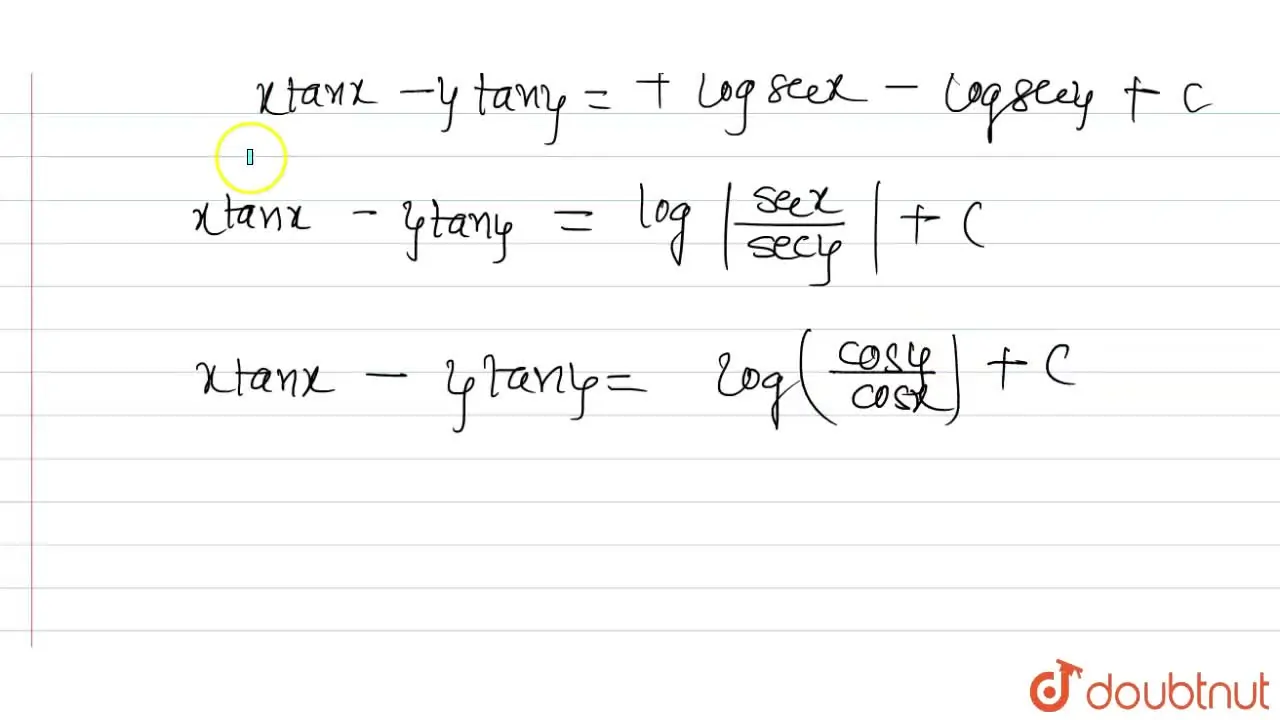 xtanx - ytany = + log secx - log secy + c
xtanx - ytany = log |secx/secy| + c
xtanx - ytany = log (cosy/cosx) + c
doubtnut